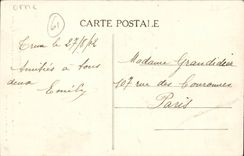 Orne
CARTE POSTALE
le 27/8/12
Amitiés à tous
deux
Emily
Madame Grandidier
107 rue des Couronnes
Paris